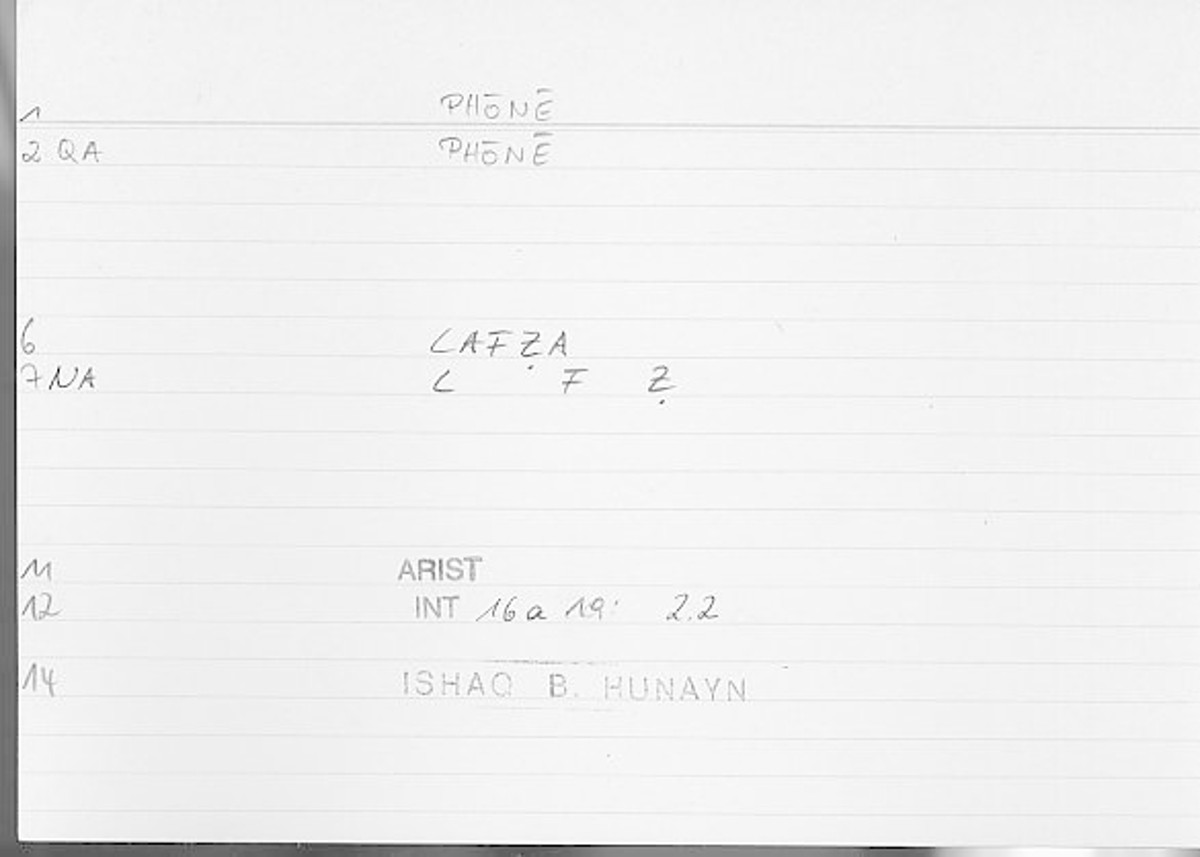 1 PHŌNĒ
2 QA PHŌNĒ
6 LAFẒA
7 NA L F Ẓ
11 ARIST
12 INT 16a 19: 2.2
14 ISHAQ B. HUNAYN